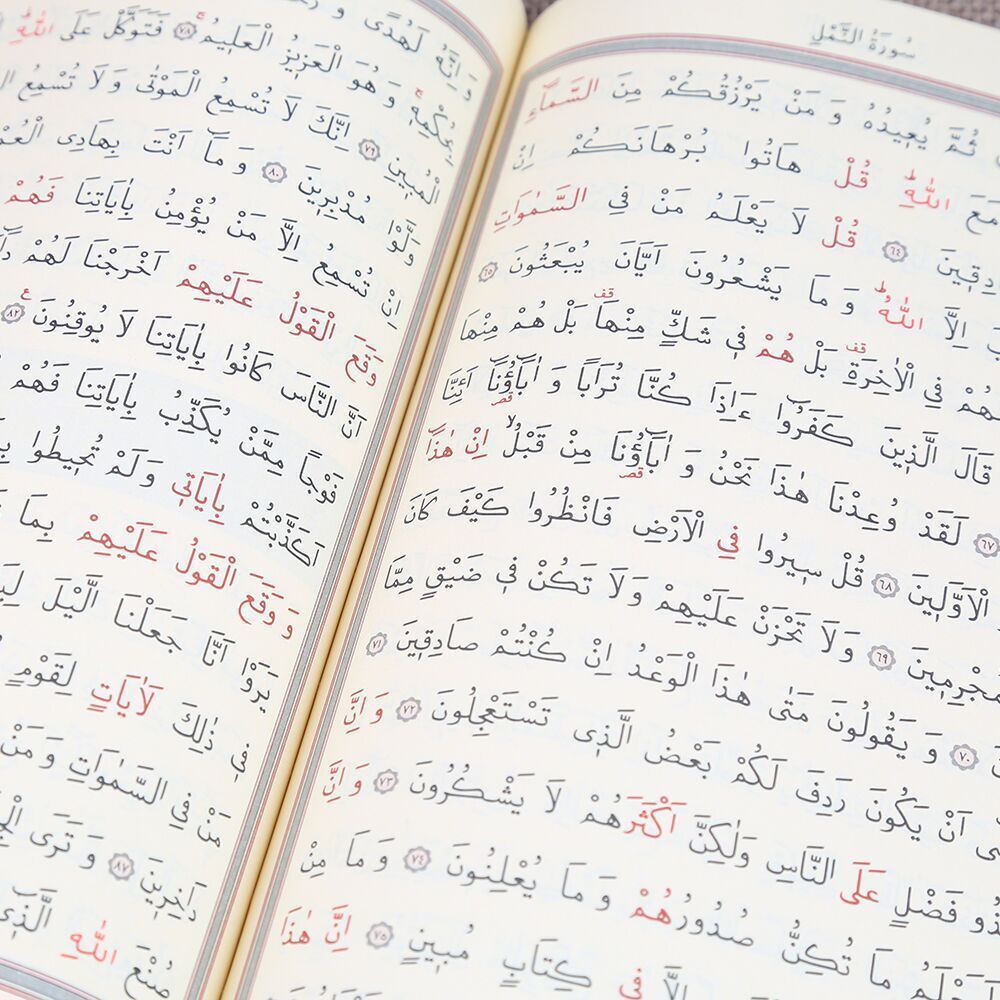 سُورَةُ النَّمْلِ
ثُمَّ يُعِيدُهُ وَ مَنْ يَرْزُقُكُمْ مِنَ السَّمَٓاءِ
اللّٰهِ قُلْ هَاتُوا بُرْهَانَكُمْ اِنْ
٦٤ قُلْ لَا يَعْلَمُ مَنْ فِي السَّمٰوَاتِ
اِلَّا اللّٰهُ وَ مَا يَشْعُرُونَ اَيَّانَ يُبْعَثُونَ ٦٥
فِي الْاٰخِرَةِ بَلْ هُمْ فِي شَكٍّ مِنْهَا بَلْ هُمْ مِنْهَا
قَالَ الَّذِينَ كَفَرُٓوا ءَاِذَا كُنَّا تُرَابًا وَ اٰبَٓاؤُ۬نَٓا اَئِنَّا
٦٧ لَقَدْ وُعِدْنَا هٰذَا نَحْنُ وَ اٰبَٓاؤُ۬نَا مِنْ قَبْلُ اِنْ هٰذَٓا
الْاَوَّلِينَ ٦٨ قُلْ سِيرُوا فِي الْاَرْضِ فَانْظُرُوا كَيْفَ كَانَ
٦٩ وَلَا تَحْزَنْ عَلَيْهِمْ وَلَا تَكُنْ فِي ضَيْقٍ مِمَّا
٧٠ وَ يَقُولُونَ مَتٰى هٰذَا الْوَعْدُ اِنْ كُنْتُمْ صَادِقِينَ ٧١
اَنْ يَكُونَ رَدِفَ لَكُمْ بَعْضُ الَّذِي تَسْتَعْجِلُونَ ٧٢ وَ اِنَّ
فَضْلٍ عَلَى النَّاسِ وَلٰكِنَّ اَكْثَرَهُمْ لَا يَشْكُرُونَ ٧٣ وَ اِنَّ
مَا تُكِنُّ صُدُورُهُمْ وَ مَا يُعْلِنُونَ ٧٤ وَ مَا مِنْ
اِلَّا فِي كِتَابٍ مُبِينٍ ٧٥ اِنَّ هٰذَا
وَ اِنَّهُ لَهُدًى وَ
بِحُكْمِهِ وَ هُوَ الْعَزِيزُ الْعَلِيمُ ٧٨ فَتَوَكَّلْ عَلَى اللّٰهِ
الْمُبِينِ ٧٩ اِنَّكَ لَا تُسْمِعُ الْمَوْتٰى وَ لَا تُسْمِعُ
وَلَّوْا مُدْبِرِينَ ٨٠ وَ مَٓا اَنْتَ بِهَادِي
اِنْ تُسْمِعُ اِلَّا مَنْ يُؤْمِنُ بِاٰيَاتِنَا فَهُمْ
وَقَعَ الْقَوْلُ عَلَيْهِمْ اَخْرَجْنَا لَهُمْ
اَنَّ النَّاسَ كَانُوا بِاٰيَاتِنَا لَا يُوقِنُونَ ٨٢
فَوْجًا مِمَّنْ يُكَذِّبُ بِاٰيَاتِنَا فَهُمْ
اَكَذَّبْتُمْ بِاٰيَاتِي وَلَمْ تُحِيطُوا
وَ وَقَعَ الْقَوْلُ عَلَيْهِمْ بِمَا
يَرَوْا اَنَّا جَعَلْنَا الَّيْلَ
فِي ذٰلِكَ لَاٰيَاتٍ لِقَوْمٍ
مَنْ فِي السَّمٰوَاتِ وَ مَنْ
دَاخِرِينَ ٨٧ وَ تَرَى
صُنْعَ اللّٰهِ الَّذِٓي